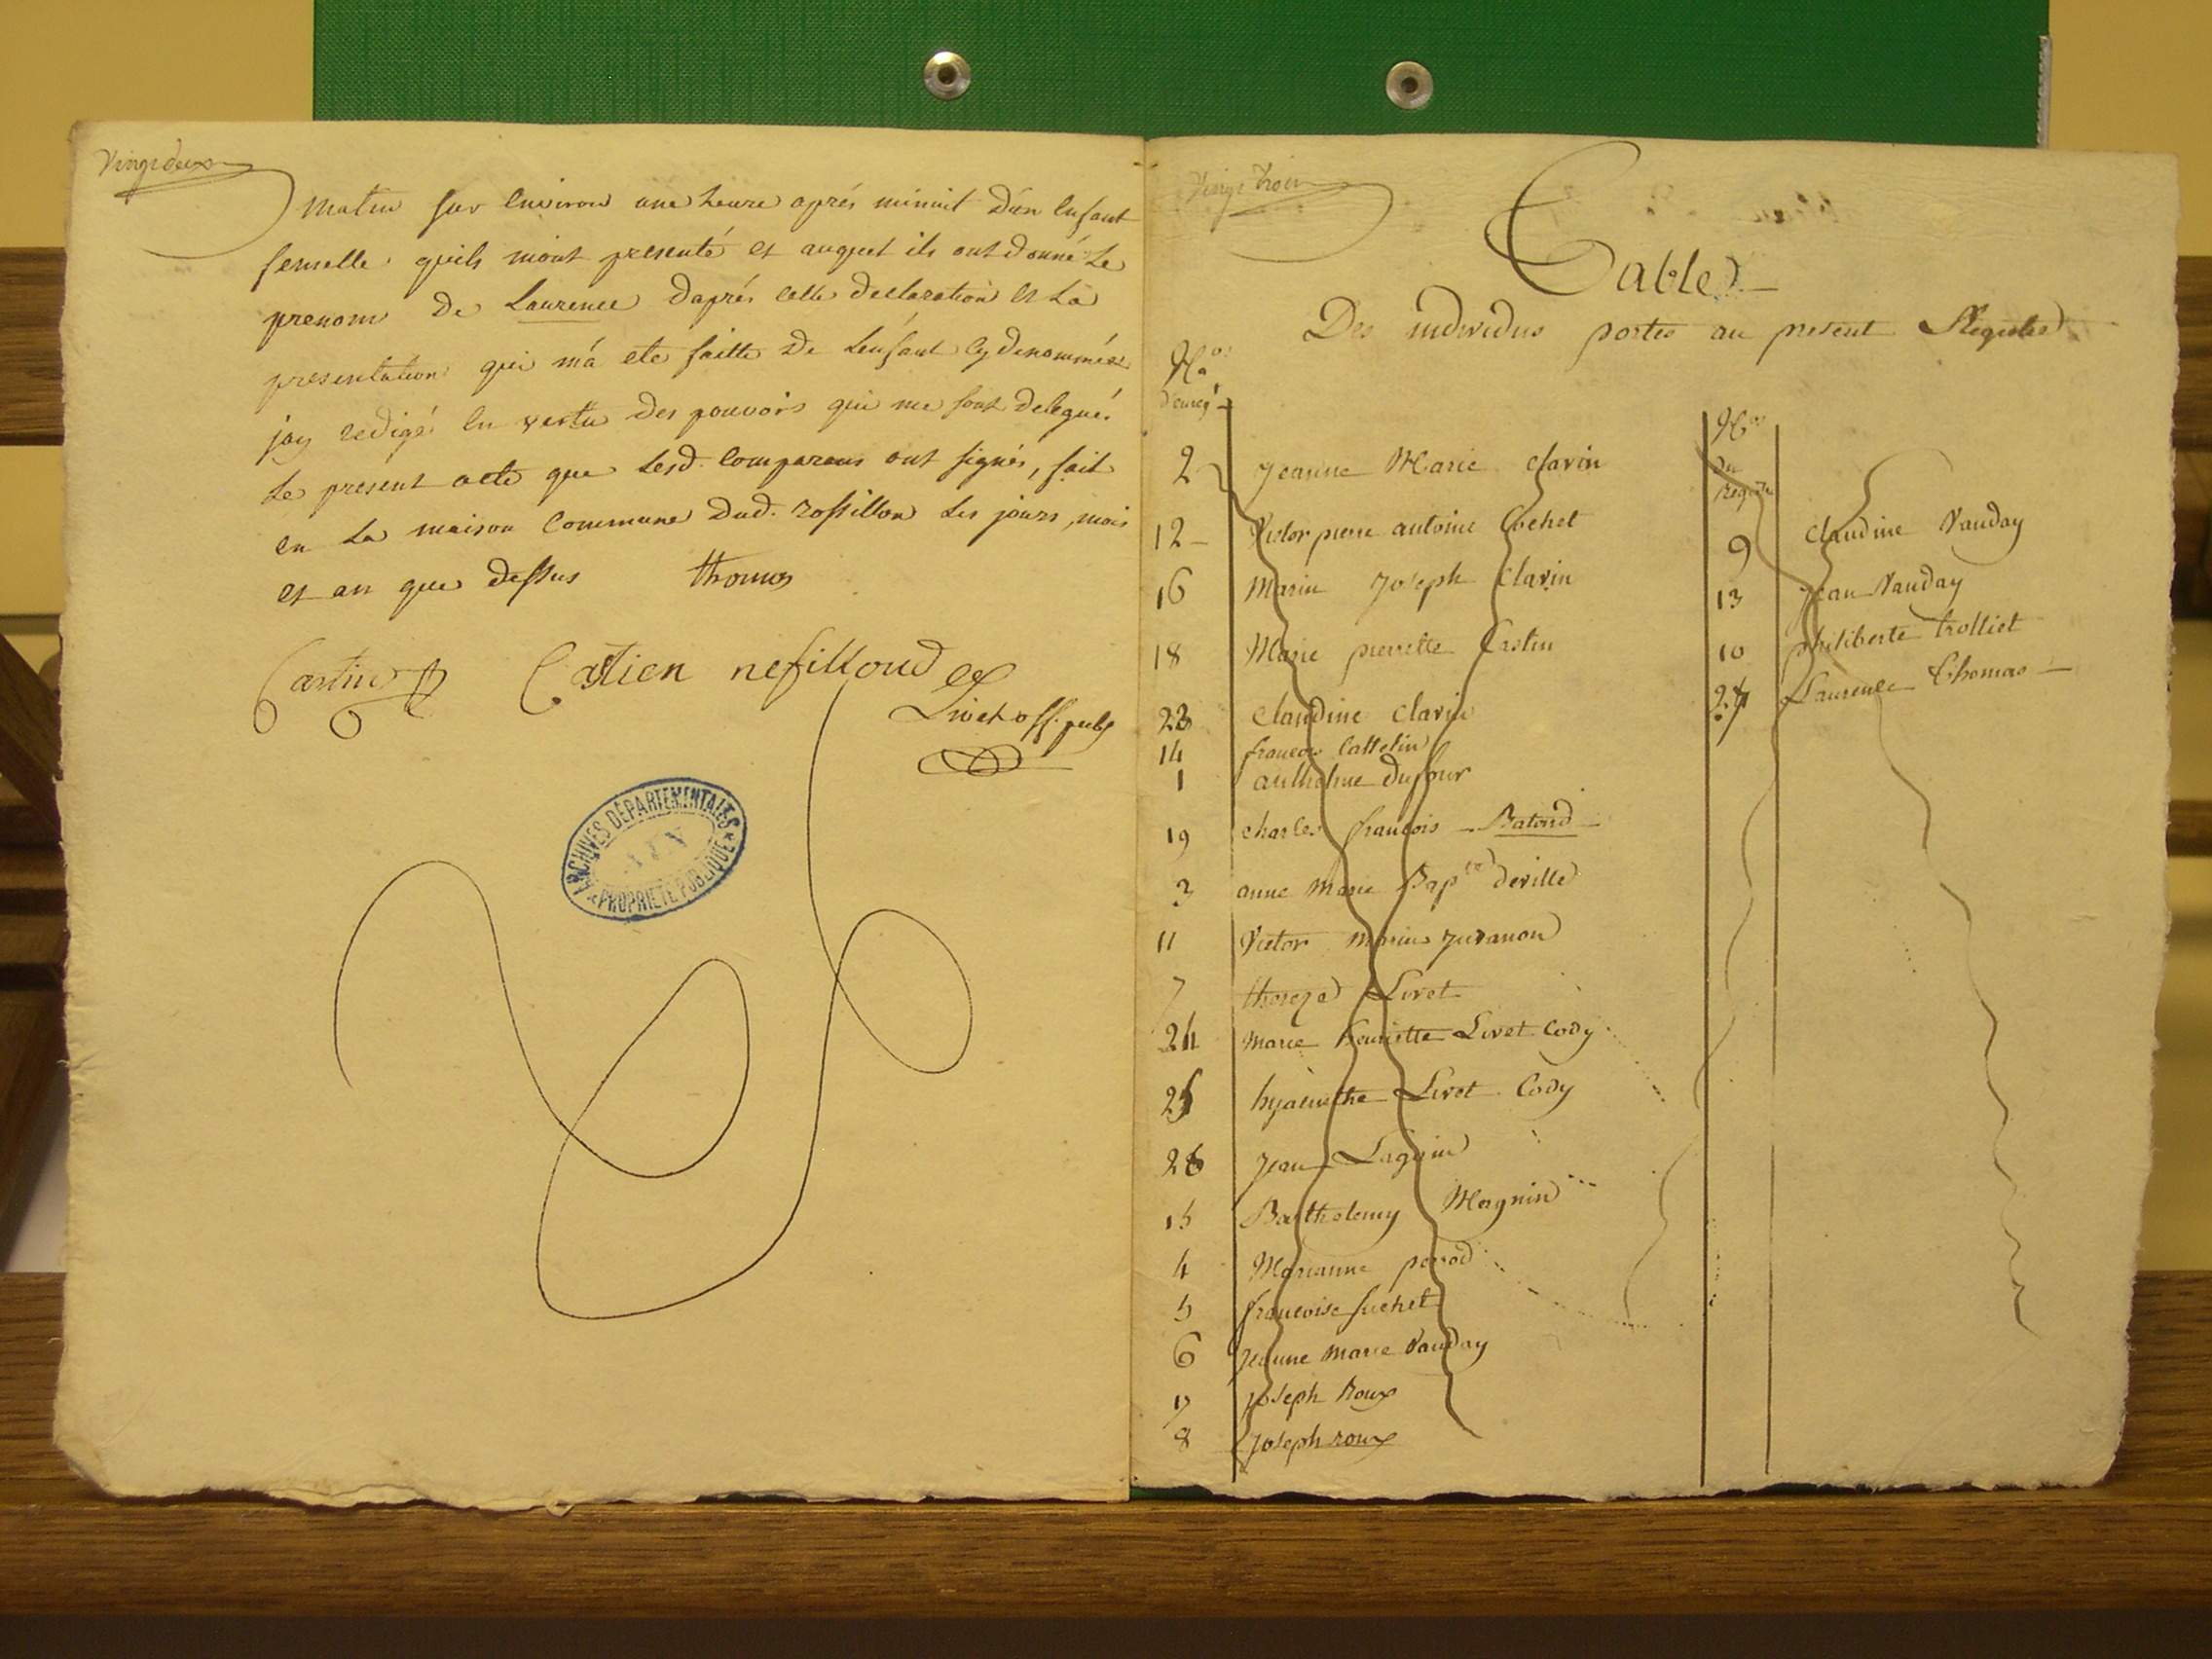 Vingt deux
matin sur lenviron une heure aprés minuit d'un enfant
femelle quils mont presenté et auquel ils ont donné le
prenom de Laurence daprés cette declaration et la
presentation qui m'a eté faitte de lenfant cy denommée
jay redigé en vertu des pouvoirs qui me sont delegués
le present acte que lesd. comparans ont signés, fait
en la maison commune dud. rossillon les jours, mois
et an que dessus thomas
Castin Castien nefilloud
Livet off. publ
ARCHIVES DÉPARTEMENTALES
AIN
PROPRIÉTÉ PUBLIQUE
Vingt trois
Table
Des individus portés au present Registre
Nos
d'enreg
2 Jeanne Marie Clavin
12 Victor pierre antoine Cochet
16 Marin Joseph Clavin
18 Marie pierrette Castin
23 Claudine Clavin
14 françois Cattelin
1 anthelme dufour
19 charles françois Batard
3 anne marie Bapte deville
11 Victor marius juvanon
7 thereze Livet
24 marie henriette Livet Cody
25 hyacinthe Livet Cody
26 Jean Laguin
15 Barthelemy Magnin
4 Marianne perrod
5 francoise suchet
6 jeanne marie Vauday
17 joseph Roux
8 joseph roux
Nos
du
Regitre
9 Claudine Vauday
13 Jean Vauday
10 philiberte trolliet
27 Laurence thomas